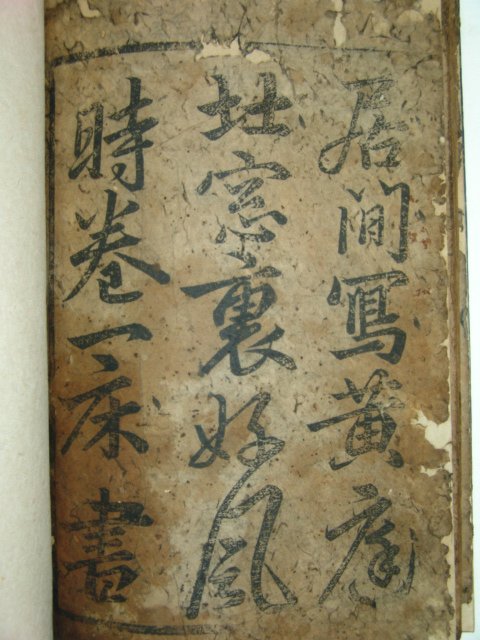 居閒寫黄庭
北窓裏好風
時卷一床書